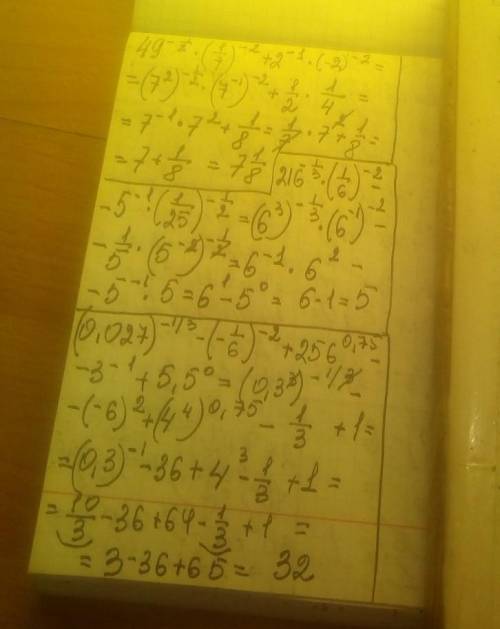 49^(-1/2) · (1/7)^(-2) + 2^(-1) · (-2)^(-2) =
= (7^2)^(-1/2) · (7^(-1))^(-2) + 1/2 · 1/4 =
= 7^(-1) · 7^2 + 1/8 = 1/7 · 7^2 + 1/8 =
= 7 + 1/8 = 7 1/8
216^(-1/3) · (1/6)^(-2) -
- 5^(-1) · (1/25)^(-1/2) = (6^3)^(-1/3) · (6^(-1))^(-2) -
- 1/5 · (5^(-2))^(-1/2) = 6^(-1) · 6^2 -
- 5^(-1) · 5 = 6^1 - 5^0 = 6 - 1 = 5
(0,027)^(-1/3) - (-1/6)^(-2) + 256^(0,75) -
- 3^(-1) + 5,5^0 = (0,3^3)^(-1/3) -
- (-6)^2 + (4^4)^(0,75) - 1/3 + 1 =
= (0,3)^(-1) - 36 + 4^3 - 1/3 + 1 =
= 10/3 - 36 + 64 - 1/3 + 1 =
= 3 - 36 + 65 = 32